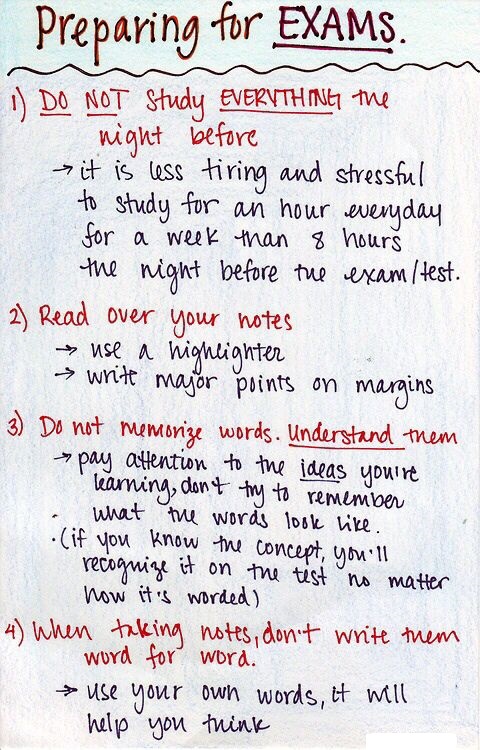 Preparing for EXAMS.
1) DO NOT study EVERYTHING the
night before
→ it is less tiring and stressful
to study for an hour everyday
for a week than 8 hours
the night before the exam/test.
2) Read over your notes
→ use a highlighter
→ write major points on margins
3) Do not memorize words. Understand them
→ pay attention to the ideas you're
learning, don't try to remember
what the words look like.
• (if you know the concept, you'll
recognize it on the test no matter
how it's worded)
4) When taking notes, don't write them
word for word.
→ use your own words, it will
help you think